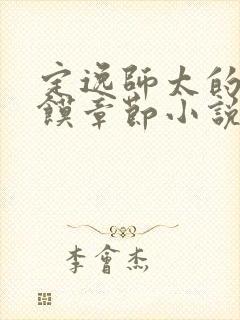 定逸師太的
饃章節小說
李會杰